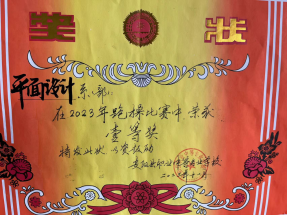 奖状
平面设计系(部)
在2023年跑操比赛中 荣获
壹等奖
特发此状 以资鼓励